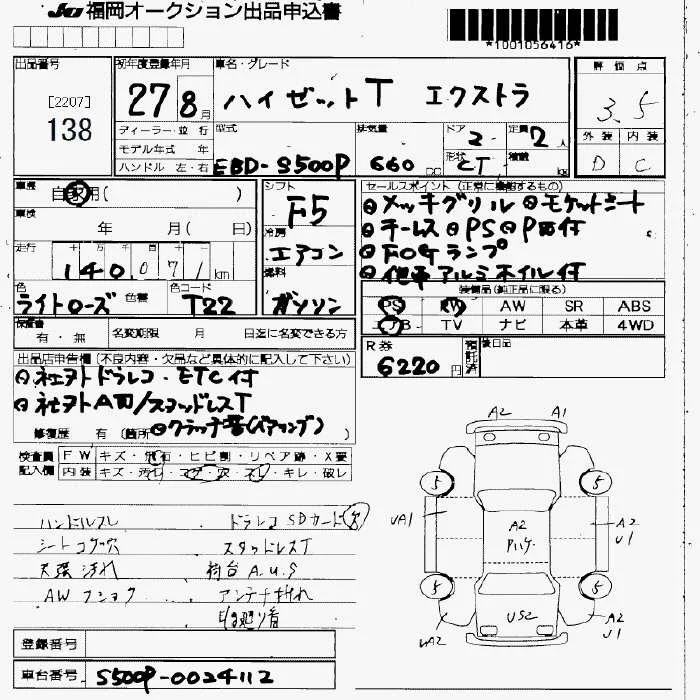 JU 福岡オークション出品申込書
*1001056416*
出品番号
[2207]
138
初年度登録年月
27 8月
車名・グレード
ハイゼットT エクストラ
評価点
3.5
外装 内装
D C
ディーラー・並行
モデル年式 年
ハンドル 左・右
型式
EBD-S500P
排気量
660 cc
ドア
2
形状
CT
定員
2人
積載
kg
車歴
自家用( )
車検
年 月( 日)
走行
十 万 千 百 十 一
140,071 km
色
ライトローズ
色替
色コード
T22
シフト
F5
冷房
エアコン
燃料
ガソリン
セールスポイント (正常に機能するもの)
◎メッキグリル ◎モケットシート
◎キーレス ◎PS ◎PW付
◎FOGランプ
◎他車アルミホイル付
装備品(純正品に限る)
PS PW AW SR ABS
エアB TV ナビ 本革 4WD
保証書
有・無
名変期限 月 日迄に名変できる方
R券
6220円
預託済
後日品
出品店申告欄 (不良内容・欠品など具体的に記入して下さい)
◎社外ドラレコ・ETC付
◎社外AW/スタッドレスT
◎クラッチ音(ベアリング)
修復歴 有 (箇所 )
検査員記入欄
FW キズ・飛石・ヒビ割・リペア跡・X要
内装 キズ・汚レ・コゲ・穴・スレ・キレ・破レ
ハンドルスレ
シートコゲ穴
天張汚れ
AWフショク
ドラレコSDカード欠
スタッドレスT
荷台A.U.S
アンテナ折れ
A2 A1
5 5
UA1
A2
U1
A2
5 5
US2
UA2
A2
U1
登録番号
車台番号
S500P-0024112